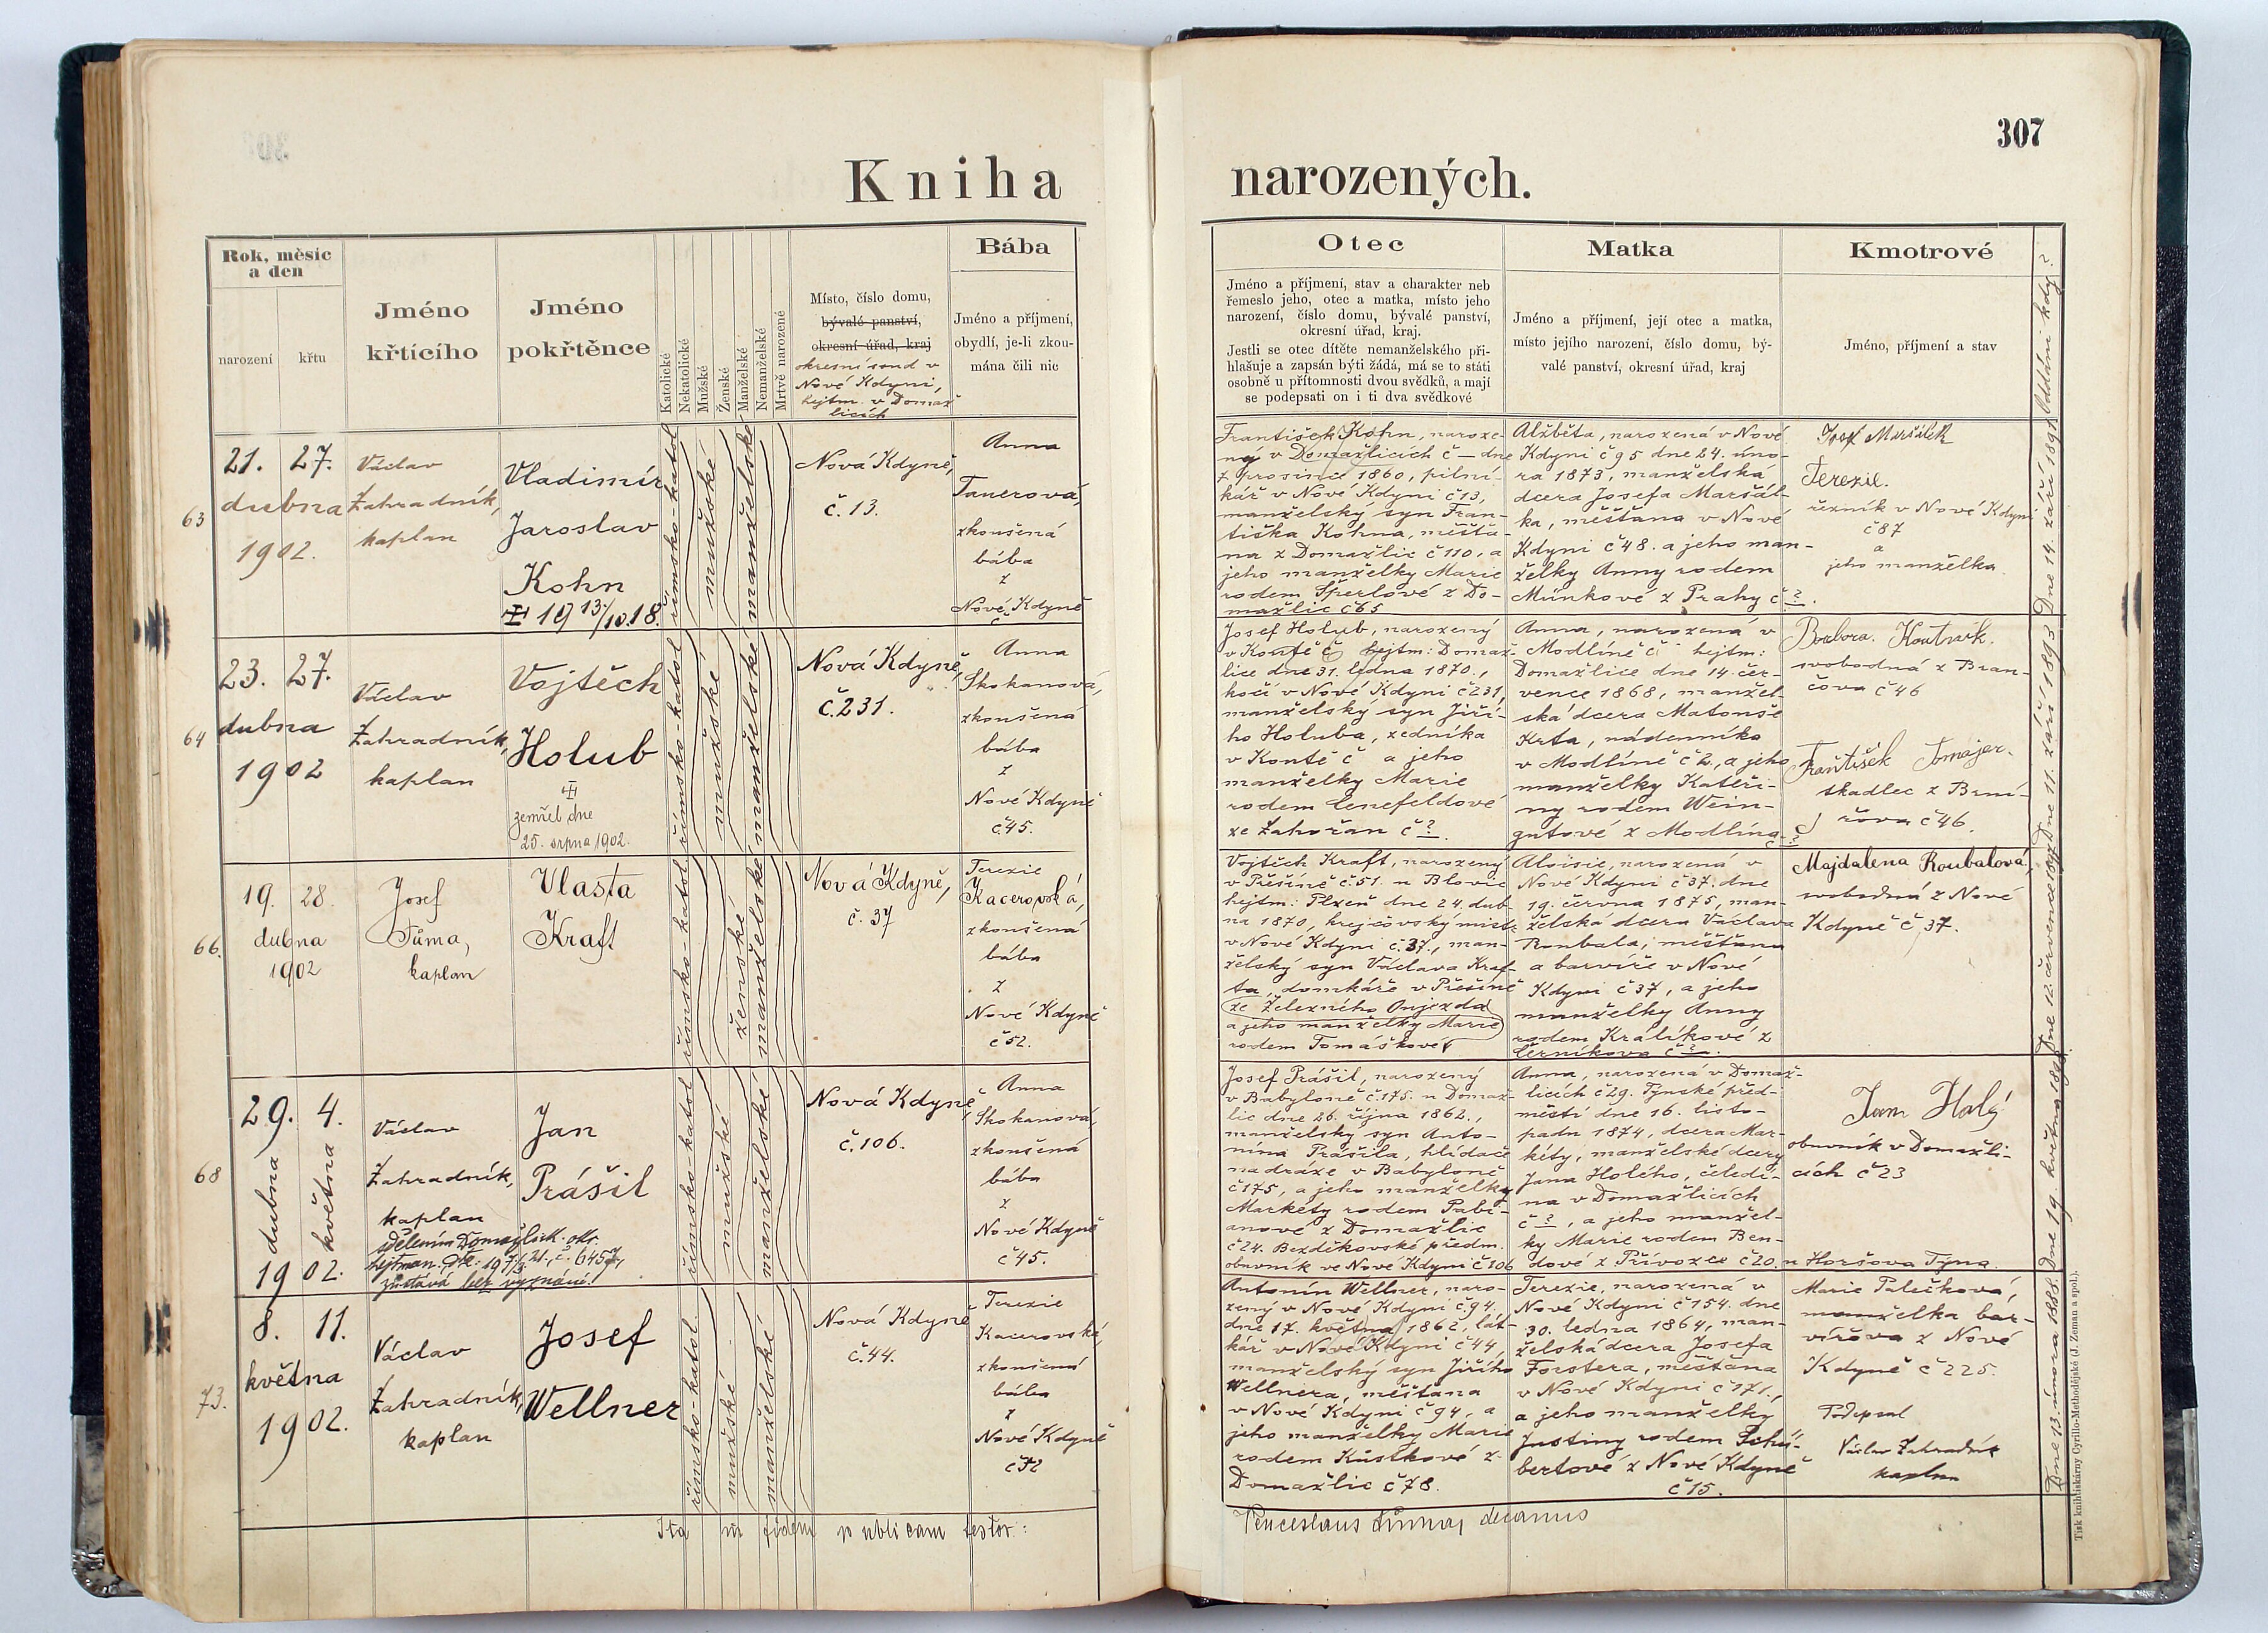 307
Kniha narozených.
Rok, měsíc
a den
narození
křtu
Jméno
křtícího
Jméno
pokřtěnce
Katolické
Nekatolické
Mužské
Ženské
Manželské
Nemanželské
Mrtvě narozené
Místo, číslo domu,
bývalé panství,
okresní úřad, kraj
okresní soud v
Nové Kdyni,
hejtm. v Domaž
licích
Bába
Jméno a příjmení,
obydlí, je-li zkou-
mána čili nic
Otec
Jméno a příjmení, stav a charakter neb
řemeslo jeho, otec a matka, místo jeho
narození, číslo domu, bývalé panství,
okresní úřad, kraj.
Jestli se otec dítěte nemanželského při-
hlašuje a zapsán býti žádá, má se to státi
osobně u přítomnosti dvou svědků, a mají
se podepsati on i ti dva svědkové
Matka
Jméno a příjmení, její otec a matka,
místo jejího narození, číslo domu, bý-
valé panství, okresní úřad, kraj
Kmotrové
Jméno, příjmení a stav
Oddáni kdy?
63
21. 27.
dubna
1902.
Václav
Zahradník,
kaplan
Vladimír
Jaroslav
Kohn
19 13/10.18.
římsko-katol
mužské
manželské
Nová Kdyně,
č. 13.
Anna
Tauerová,
zkoušená
bába
z
Nové Kdyně
č
František Kohn, naroze-
ný v Domažlicích č — dne
7 prosince 1860, pilní-
kář v Nové Kdyni č 13,
manželský syn Fran-
tiška Kohna, měšťa-
na z Domažlic č 110, a
jeho manželky Marie
rodem Šperlové z Do-
mažlic č 65
Alžběta, narozená v Nové
Kdyni č 95 dne 24. úno-
ra 1873, manželská
dcera Josefa Maršál-
ka, měšťana v Nové
Kdyni č 48. a jeho man-
želky Anny rodem
Můnkové z Prahy č ?.
Josef Maršálek
Terezie.
řezník v Nové Kdyni
č 87
a
jeho manželka
Dne 14. září 1891.
64
23. 27.
dubna
1902
Václav
Zahradník,
kaplan
Vojtěch
Holub
zemřel dne
25. srpna 1902.
římsko-katol
mužské
manželské
Nová Kdyně,
č. 231.
Anna
Skokanová,
zkoušená
bába
z
Nové Kdyně
č. 45.
Josef Holub, narozený
v Koutě č hejtm: Domaž-
lice dne 31. ledna 1870.,
kočí v Nové Kdyni č 231,
manželský syn Jiří-
ho Holuba, zedníka
v Koutě č a jeho
manželky Marie
rodem Lenefeldové
ze Zahořan č ?.
Anna, narozená v
Modlíně č hejtm:
Domažlice dne 14. čer-
vence 1868, manžel-
ská dcera Matouše
Krta, nádenníka
v Modlíně č 2., a jeho
manželky Kateři-
ny rodem Wein-
gutové z Modlína ?
Barbora
svobodná z Bran-
čova č 46
František Tomajer.
tkadlec z Brní-
řova č 46.
Dne 11. září 1893
66.
19. 28.
dubna
1902
Josef
Tůma,
kaplan
Vlasta
Kraft
římsko-katol
ženské
manželské
Nová Kdyně,
č. 37
Terezie
Kacerovská,
zkoušená
bába
z
Nové Kdyně
č 52.
Vojtěch Kraft, narozený
v Přešíně č. 51. u Blovic
hejtm: Plzeň dne 24. dub-
na 1870, krejčovský mistr
v Nové Kdyni č. 37., man-
želský syn Václava Kraf-
ta, domkáře v Přešíně
ze Železného Oujezda
a jeho manželky Marie
rodem Tomáškové
Aloisie, narozená v
Nové Kdyni č 37. dne
19. června 1875, man-
želská dcera Václava
Roubala, měšťana
a barvíře v Nové
Kdyni č 37, a jeho
manželky Anny
rodem Králíkové z
Černíkova č ?.
Majdalena Roubalová,
svobodná z Nové
Kdyně č 37.
Dne 12. července 1897
68
29. 4.
dubna května
1902.
Václav
Zahradník,
kaplan
sdělením Domažlick. okr.
hejtman.
zůstává bez vyznání.
Jan
Prášil
římsko-katol
mužské
manželské
Nová Kdyně,
č. 106.
Anna
Skokanová,
zkoušená
bába
z
Nové Kdyně
č 45.
Josef Prášil, narozený
v Babyloně č. 175. u Domaž-
lic dne 26. října 1862.,
manželský syn Anto-
nína Prášila, hlídače
na dráze v Babyloně
č 175, a jeho manželky
Markéty rodem Pabi-
anové z Domažlic
č 24. Bezděkovské předm.
obuvník ve Nové Kdyni č 106
Anna, narozená v Domaž-
licích č 29. Týnské před-
městí dne 16. listo-
padu 1874, dcera Mar-
kéty, manželské dcery
Jana Holého, čeledí-
na v Domažlicích
č ?, a jeho manžel-
ky Marie rodem Ben-
dové z Přívozce č 20. u Horšova Týna.
Jan Holý
obuvník v Domažli-
cích č 23
Dne 19. května
73.
8. 11.
května
1902.
Václav
Zahradník,
kaplan
Josef
Wellner
římsko-katol
mužské
manželské
Nová Kdyně
č. 44.
Terezie
Kacerovská,
zkoušená
bába
z
Nové Kdyně
č 52
Antonín Wellner, naro-
zený v Nové Kdyni č. 94,
dne 17. května 1862, lát-
kář v Nové Kdyni č 44,
manželský syn Jiřího
Wellnera, měšťana
v Nové Kdyni č 94, a
jeho manželky Marie
rodem Kůstkové z
Domažlic č 78.
Terezie, narozená v
Nové Kdyni č 154. dne
30. ledna 1864, man-
želská dcera Josefa
Forstera, měšťana
v Nové Kdyni č 171.,
a jeho manželky
Justiny rodem Schu-
bertové z Nové Kdyně
č 15.
Marie Palečková,
manželka bar-
vířova z Nové
Kdyně č 225.
Podepsal
Václav Zahradník
kaplan
Dne 13. února 1888.
Ita in fidem publicam testor:
Venceslaus decanus
Tisk knihtiskárny Cyrillo-Methodějské (J. Zeman a spol.).